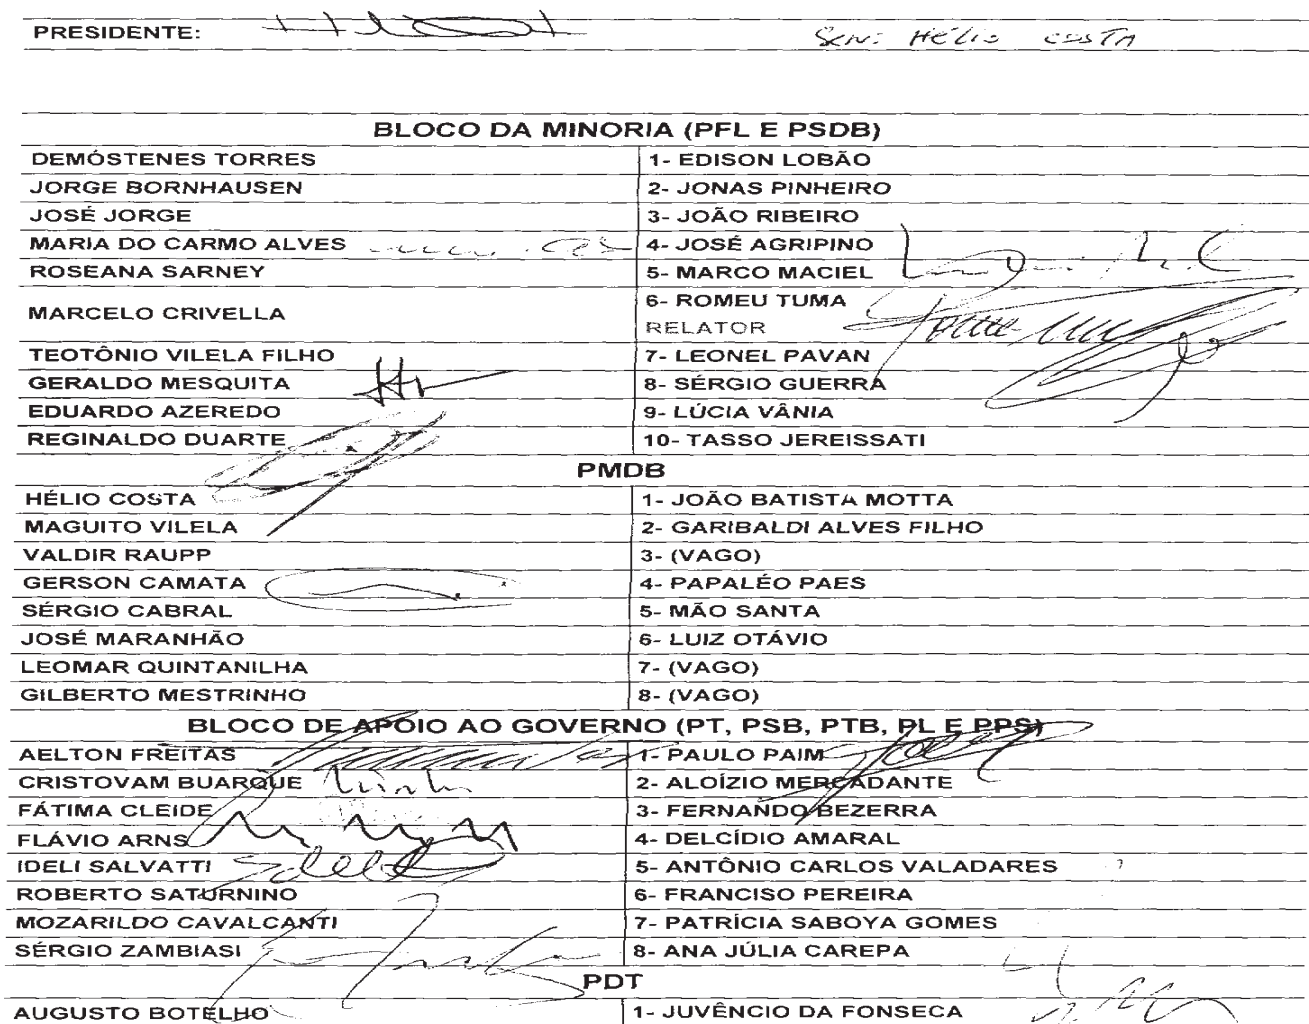 PRESIDENTE: SEN: HÉLIO COSTA
BLOCO DA MINORIA (PFL E PSDB)
DEMÓSTENES TORRES 1- EDISON LOBÃO
JORGE BORNHAUSEN 2- JONAS PINHEIRO
JOSÉ JORGE 3- JOÃO RIBEIRO
MARIA DO CARMO ALVES 4- JOSÉ AGRIPINO
ROSEANA SARNEY 5- MARCO MACIEL
MARCELO CRIVELLA 6- ROMEU TUMA
RELATOR
TEOTÔNIO VILELA FILHO 7- LEONEL PAVAN
GERALDO MESQUITA 8- SÉRGIO GUERRA
EDUARDO AZEREDO 9- LÚCIA VÂNIA
REGINALDO DUARTE 10- TASSO JEREISSATI
PMDB
HÉLIO COSTA 1- JOÃO BATISTA MOTTA
MAGUITO VILELA 2- GARIBALDI ALVES FILHO
VALDIR RAUPP 3- (VAGO)
GERSON CAMATA 4- PAPALÉO PAES
SÉRGIO CABRAL 5- MÃO SANTA
JOSÉ MARANHÃO 6- LUIZ OTÁVIO
LEOMAR QUINTANILHA 7- (VAGO)
GILBERTO MESTRINHO 8- (VAGO)
BLOCO DE APOIO AO GOVERNO (PT, PSB, PTB, PL E PPS)
AELTON FREITAS 1- PAULO PAIM
CRISTOVAM BUARQUE 2- ALOÍZIO MERCADANTE
FÁTIMA CLEIDE 3- FERNANDO BEZERRA
FLÁVIO ARNS 4- DELCÍDIO AMARAL
IDELI SALVATTI 5- ANTÔNIO CARLOS VALADARES
ROBERTO SATURNINO 6- FRANCISO PEREIRA
MOZARILDO CAVALCANTI 7- PATRÍCIA SABOYA GOMES
SÉRGIO ZAMBIASI 8- ANA JÚLIA CAREPA
PDT
AUGUSTO BOTELHO 1- JUVÊNCIO DA FONSECA